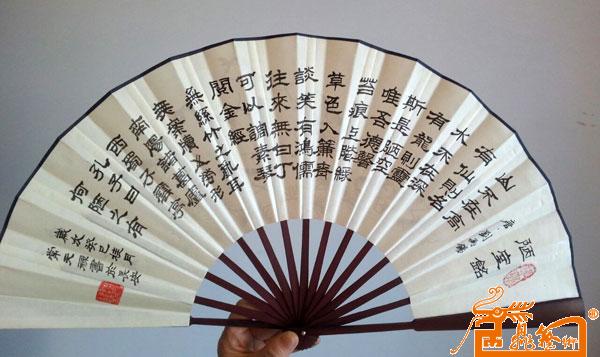 陋室銘
唐 劉禹錫
山不在高
有仙則名
水不在深
有龍則靈
斯是陋室
唯吾德馨
苔痕上階綠
草色入簾青
談笑有鴻儒
往來無白丁
可以調素琴
閱金經
無絲竹之亂耳
無案牘之勞形
南陽諸葛廬
西蜀子雲亭
孔子曰
何陋之有
歲次癸巳桃月
天書於長安